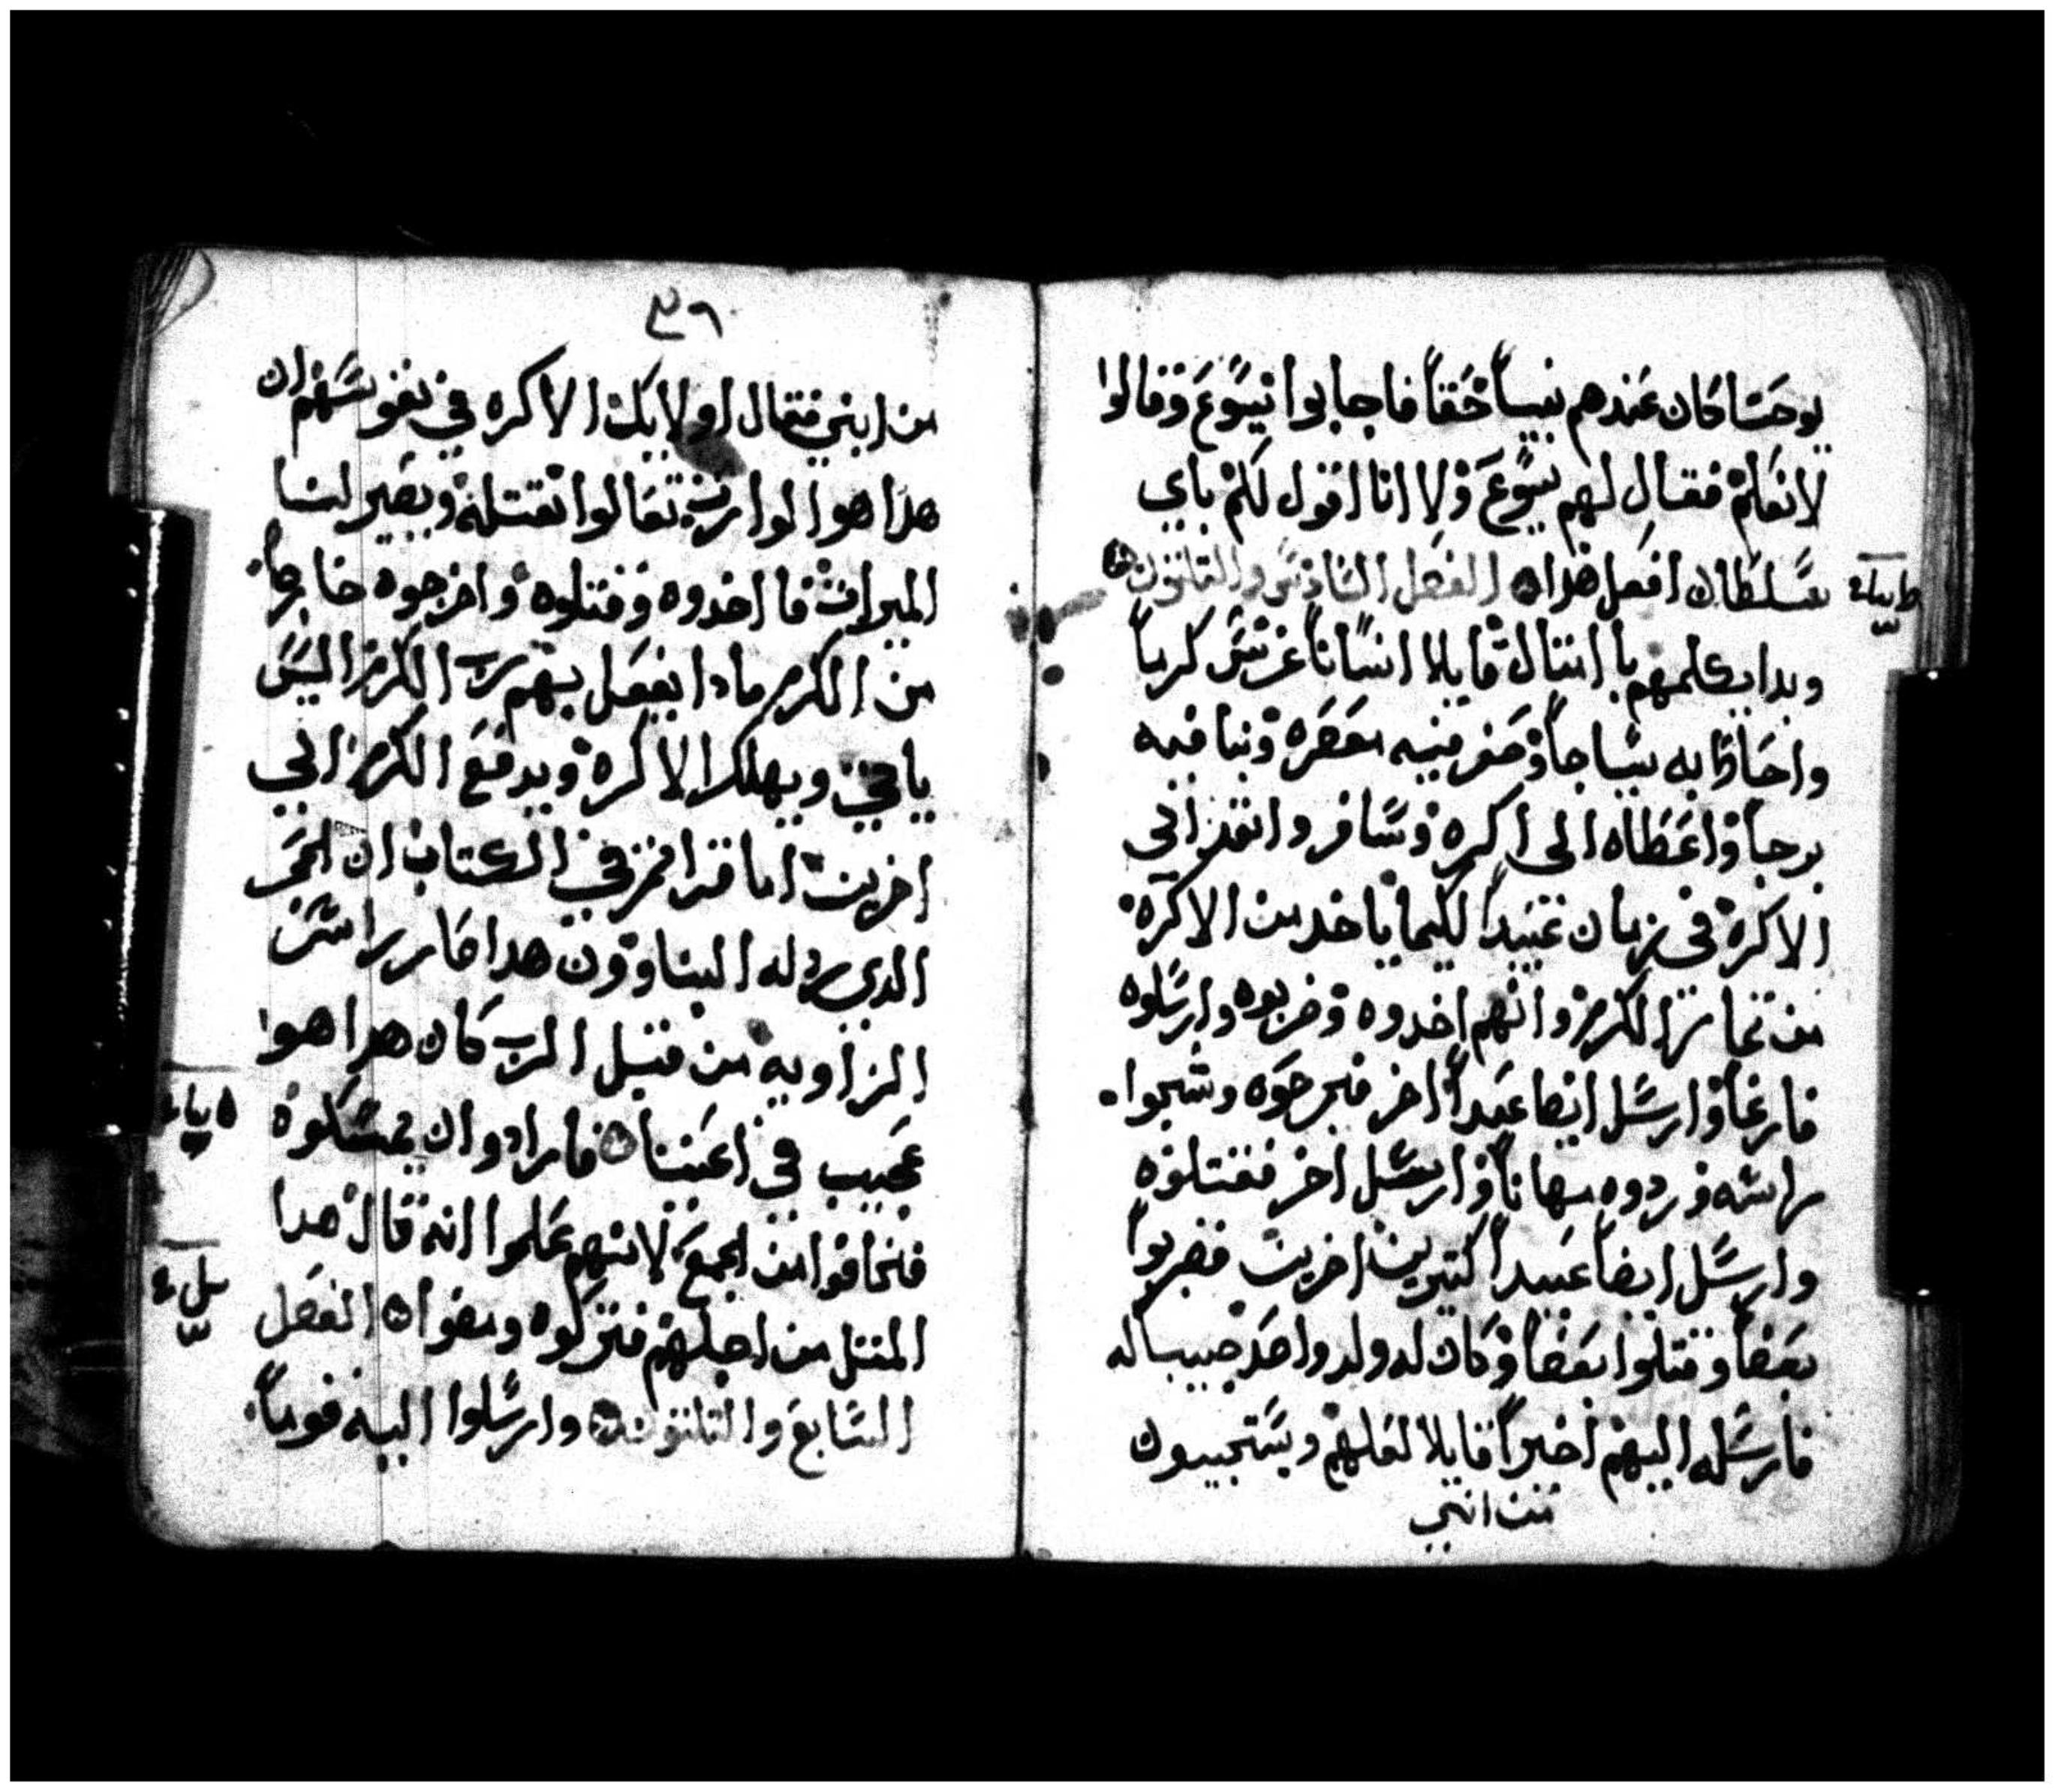 يوحنا كان عندهم نبياً حقاً فاجابوا ليسوع وقالوا
لا نعلم فقال لهم يسوع ولا انا اقول لكم باي
سلطان افعل هدا الفصل السادس والتلتون
وبدا يكلمهم بامتال قايلا انساناً غرس كرماً
واحاط به سياجاً وحفر فيه معصره وبنا فيه
برجاً واعطاه الى اكره وسافر وانفد الى
الاكرة في زمان عبيداً لكيما ياخد من الاكرة
من تمار الكرم وانهم اخدوه وضربوه وارسلوه
فارغاً وارسل ايضا عبداً اخر فجرحوه وشجوا
راسه وردوه مهاناً وارسل اخر فقتلوه
وارسل ايضاً عبيداً كتيرين اخرين فضربوا
بعضاً وقتلوا بعضاً وكان له ولد واحد حبيبا له
فارسله اليهم اخيراً قايلا لعلهم ويستحيون
من ابني
٣٦
من ابني فقال اولايك الاكره في نفوسهم ان
هدا هوا الوارت تعالوا نقتله ويصير لنا
الميرات فا اخدوه وقتلوه واخرجوه خارجاً
من الكرم مادا يفعل بهم رب الكرم اليس
ياتي ويهلك الاكرة ويدفع الكرم الي
اخرين اما قراتم في الكتاب ان الحجر
الدي ردله البناوون هدا صار راس
الزاويه من قبل الرب كان هدا هوا
عجيب في اعيننا فارادوا ان يمسكوه
فخافوا من الجمع لانهم علموا انه قال هدا
المتل من اجلهم فتركوه ومضوا الفصل
السابع والتلتون وارسلوا اليه قوماً